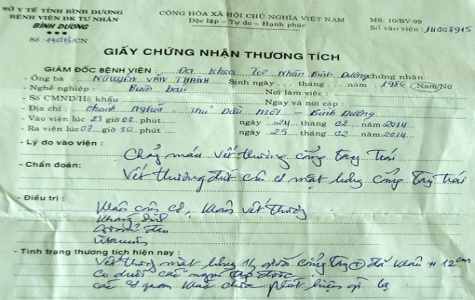 SỞ Y TẾ TỈNH BÌNH DƯƠNG
BỆNH VIỆN ĐK TƯ NHÂN
BÌNH DƯƠNG
Số: /CN
CỘNG HÒA XÃ HỘI CHỦ NGHĨA VIỆT NAM
Độc lập - Tự do - Hạnh phúc
MS. 10/BV-99
Số vào viện: 14008915
GIẤY CHỨNG NHẬN THƯƠNG TÍCH
GIÁM ĐỐC BỆNH VIỆN: Đa Khoa Tư Nhân Bình Dương chứng nhận
- Ông bà: Nguyễn Văn Thành 1986 Nam/Nữ
- Nghề nghiệp: Buôn bán Nơi làm việc:
- Số CMND/Hộ khẩu Ngày và nơi cấp
- Địa chỉ: Chánh Nghĩa - Thủ Dầu Một - Bình Dương
- Vào viện lúc 23 giờ 08 phút ngày 24 tháng 02 năm 2014
- Ra viện lúc 07 giờ 30 phút ngày 25 tháng 02 năm 2014
- Lý do vào viện:
Chảy máu vết thương cẳng tay trái
- Chẩn đoán:
Vết thương đứt cơ mặt lưng cẳng tay trái
- Điều trị:
Khâu cơ, khâu vết thương
Kháng sinh
Giảm đau
Vitamin
- Tình trạng thương tích hiện nay:
Vết thương mặt lưng 1/3 giữa cẳng tay (T) đã khâu # 12cm
Co duỗi các ngón tay được
Các cơ quan khác chưa phát hiện